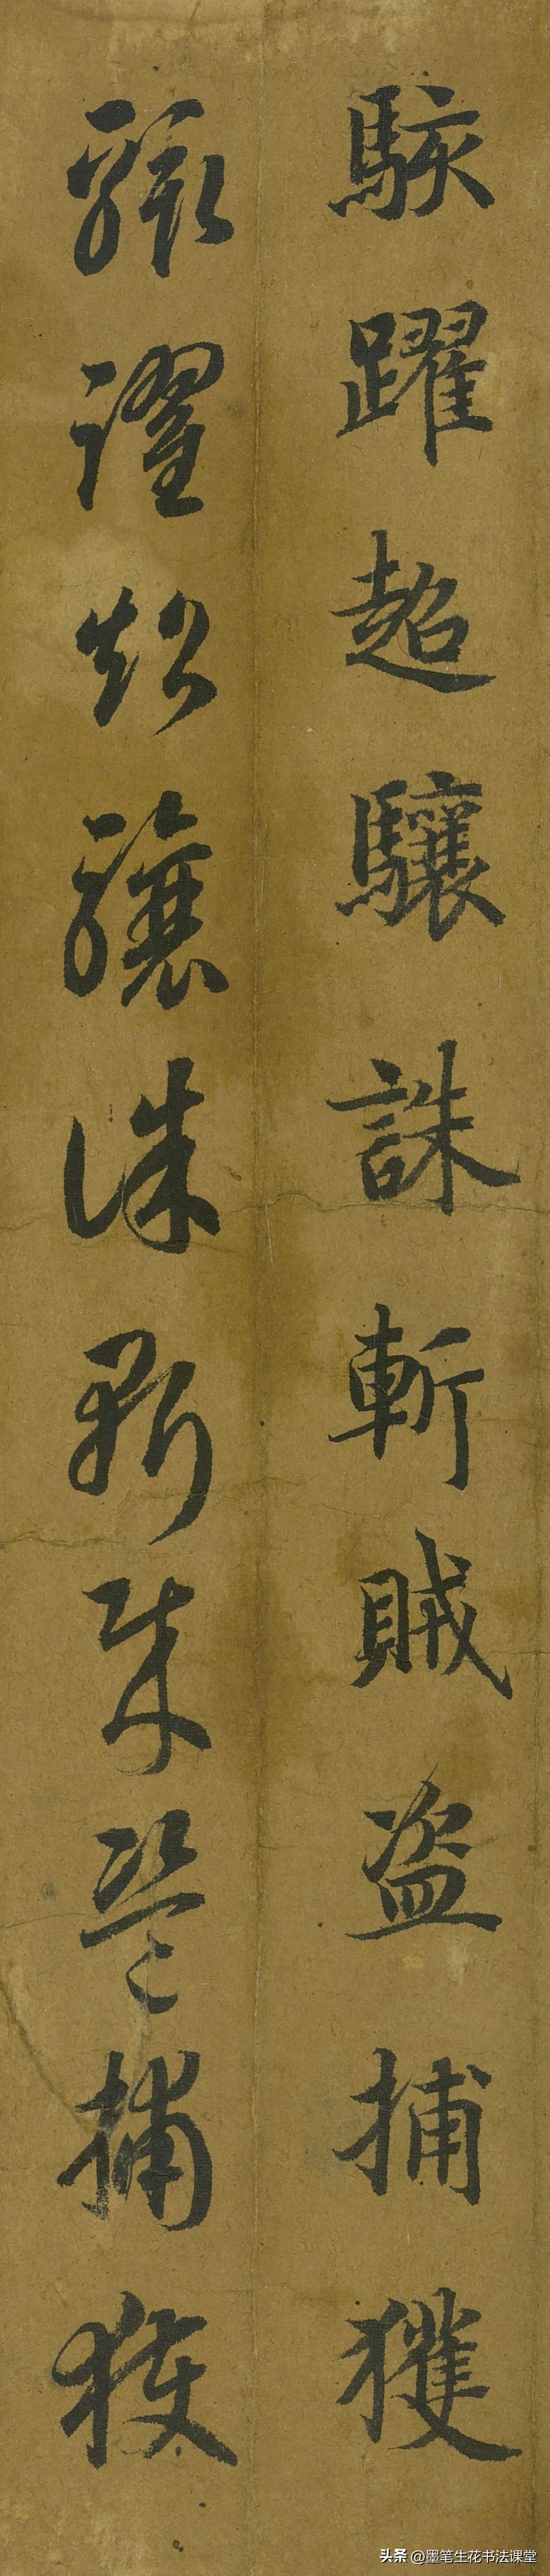 駭躍超驤誅斬賊盗捕獲
駭躍超驤誅斬賊盗捕獲
头条 @墨笔生花书法课堂